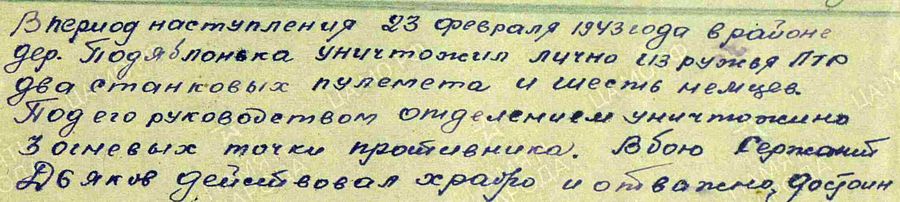 В период наступления 23 февраля 1943 года в районе
дер. Подяблонька уничтожил лично из ружья ПТР
два станковых пулемета и шесть немцев
Под его руководством отделением уничтожено
3 огневых точки противника. В бою Сержант
Дьяков действовал храбро и отважно, достоин